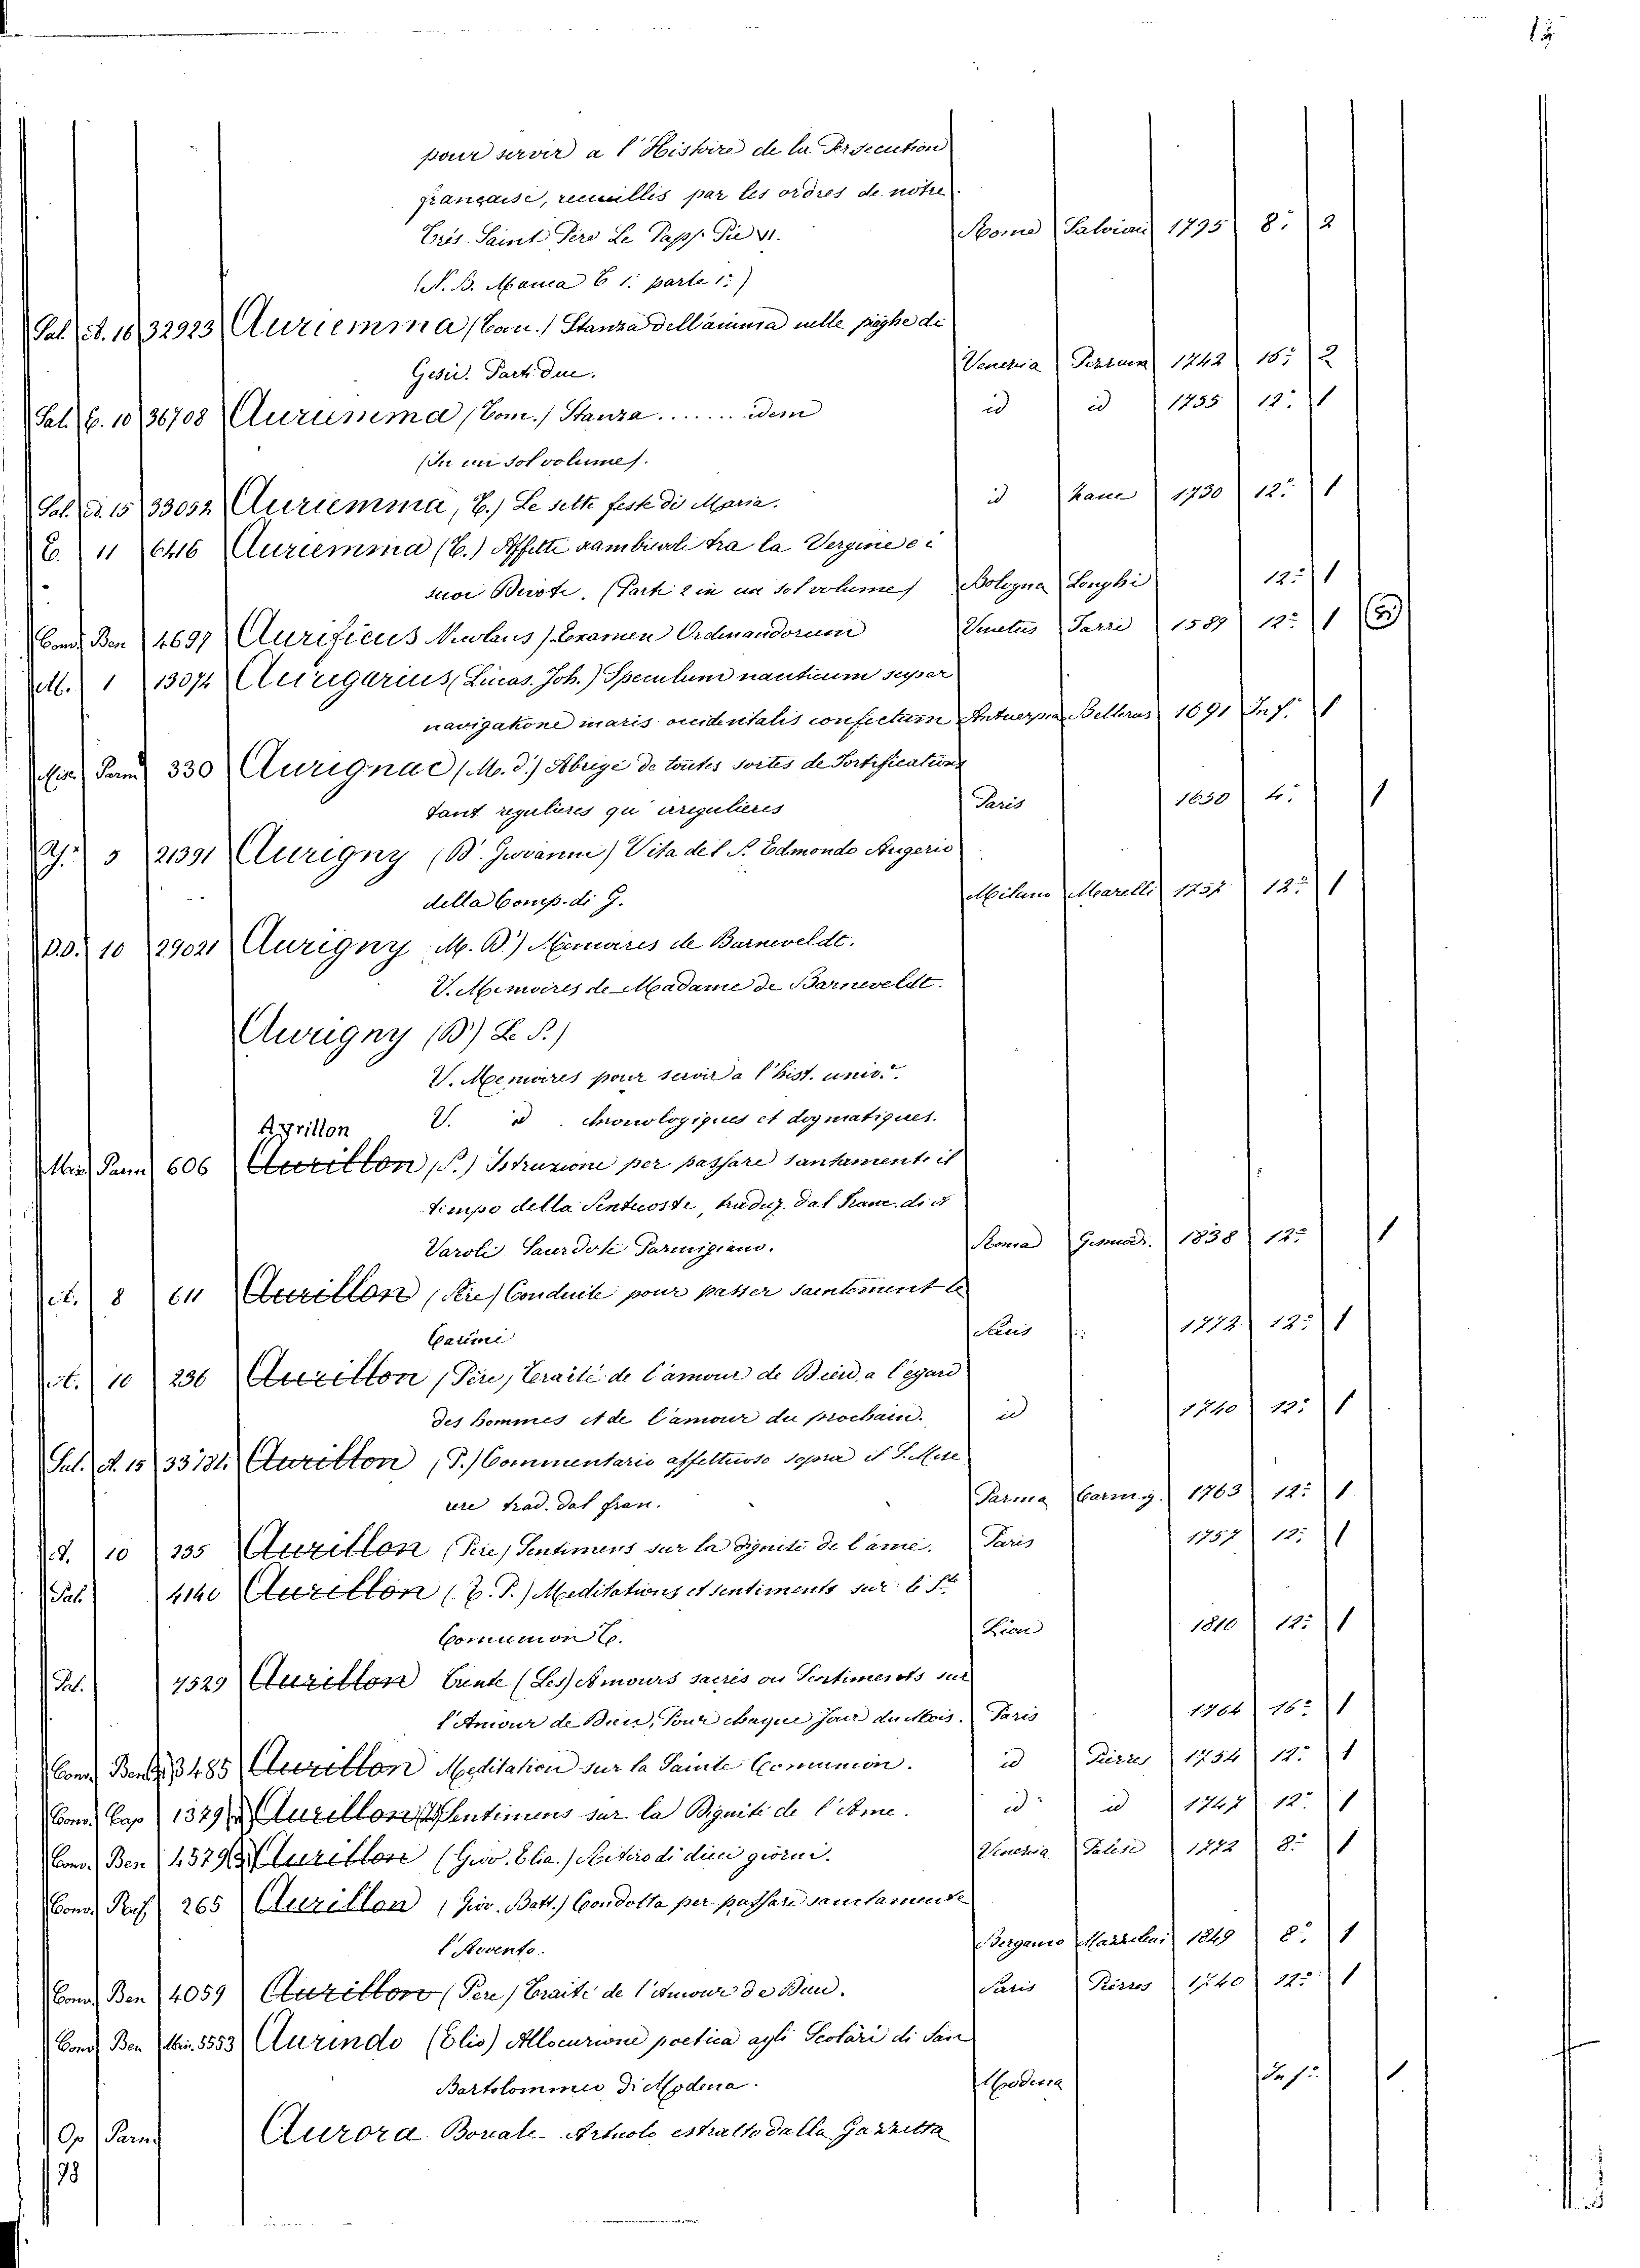 pour servir a l'Histoire de la Persecution
française, recueillis par les ordres de nôtre
Très Saint Père Le Pape Pie VI. Rome Salvioni 1795 8.° 2
(N. B. Manca T 1. parte 1.)
Sal. A. 16 32923 Auriemma (Tom.) Stanza dell'anima nelle piaghe di
Gesù. Parti due. Venezia 1742 16.° 2
Sal. C. 10 36708 Auriemma (Tom.) Stanza ...... idem id id 1755 12.° 1
(In un sol volume).
Sal. D. 15 33052 Auriemma, T.) Le sette feste di Maria. id 1730 12.° 1
C. 11 6416 Auriemma (T.) Affetti scambievoli tra la Vergine e i
suoi Divoti. (Parti 2 in un sol volume) Bologna Longhi 12.° 1
Conv. Ben 4697 Aurificus Nicolaus) Examen Ordinandorum Venetus 1589 12.° 1
M. 1 13074 Aurigarius (Lucas. Joh.) Speculum nauticum super
navigatione maris occidentalis confectum Antuerpia Bellerus 1691 In f.° 1
Mis. Parm 330 Aurignac (M. d.) Abrigé de toutes sortes de Fortifications
tant regulieres qu' irregulieres Paris 1650 4.° 1
5 21391 Aurigny (B. Giovanni) Vita del P. Edmondo Augerio
della Comp. di G. Milano Marelli 1757 12.° 1
DD. 10 29021 Aurigny M. B.) Memoires de Barneveldt.
V. Memoires de Madame de Barneveldt.
Avrigny (B) L. P.)
V. Memoires pour servir a l'hist. univ.
V. id. chronologiques et dogmatiques.
Avrillon
Mis. Parm 606 Aurillon, P.) Istruzione per passare santamente il
tempo della Pentecoste, traduz. dal Franc. di
Varoli Sacerdote Parmigiano. Roma 1838 12.° 1
A. 8 611 Aurillon (Père) Conduite pour passer saintement le
Carême Paris 1772 12.° 1
A. 10 236 Aurillon (Père) Traité de l'amour de Dieu, a l'egard
des hommes et de l'amour du prochain. id 1740 12.° 1
Sal. A. 15 33134 Aurillon, P.) Commentario affettuoso sopra il S. Mise
rere trad. dal fran. Parma Carmig. 1763 12.° 1
A. 10 235 Aurillon (Père) Sentimens sur la dignité de l'âme. Paris 1757 12.° 1
Pal. 4140 Aurillon (L. P.) Meditations et sentiments sur la S.te
Comunion Lion 1810 12.° 1
Pal. 7529 Aurillon (Les) Amours sacrés ou Sentiments sur
l'Amour de Dieu, Pour chaque jour du Mois. Paris 1764 16.° 1
Conv. Ben 3485 Aurillon Meditation sur la Sainte Communion. id Pierres 1754 12.° 1
Conv. Cap 1379 Aurillon Sentimens sur la Dignité de l'Ame. id id 1747 12.° 1
Conv. Ben 4579 Aurillon (Giov. Elia.) Ritiro di dieci giorni. Venezia 1772 8.° 1
Conv. 265 Aurillon, Giov. Batt.) Condotta per passare santamente
l'Avvento. Bergamo Mazzoleni 1849 8.° 1
Conv. Ben 4059 Aurillon (Pere) Traité de l'Amour de Dieu. Paris Pierres 1740 12.° 1
Conv. Ben Min. 5553 Aurindo (Elio) Allocuzione poetica agli Scolari di San
Bartolommeo di Modena. Modena In f.° 1
Op Parm Aurora Boreale Articolo estratto dalla Gazzetta